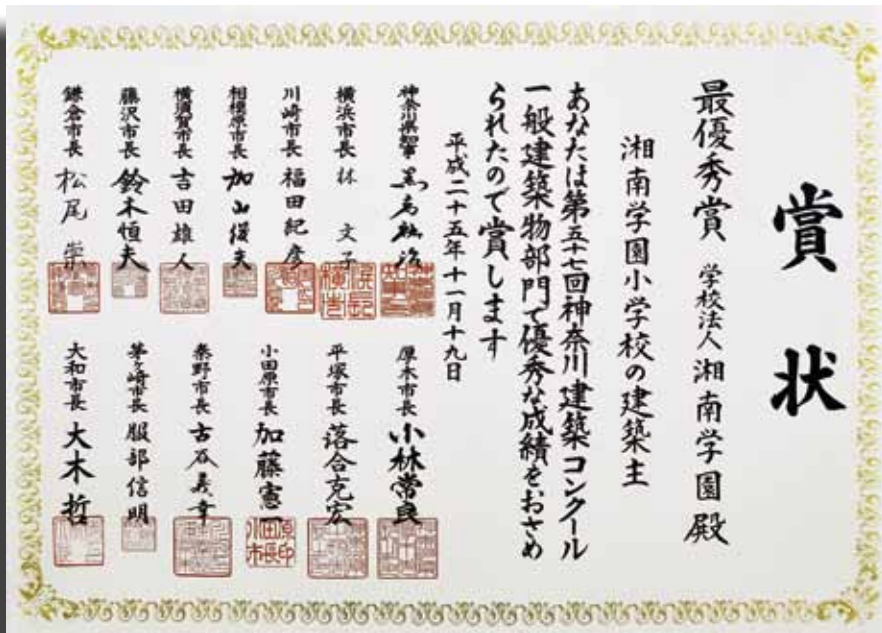 賞状
最優秀賞 学校法人 湘南学園殿
湘南学園小学校の建築主
あなたは第五十七回神奈川建築コンクール
一般建築物部門で優秀な成績をおさめ
られたので賞します
平成二十五年十一月十九日
神奈川県知事 黒岩祐治
横浜市長 林 文子
川崎市長 福田紀彦
相模原市長 加山俊夫
横須賀市長 吉田雄人
藤沢市長 鈴木恒夫
鎌倉市長 松尾 崇
厚木市長 小林常良
平塚市長 落合克宏
小田原市長 加藤憲一
秦野市長 古谷義幸
茅ヶ崎市長 服部信明
大和市長 大木 哲